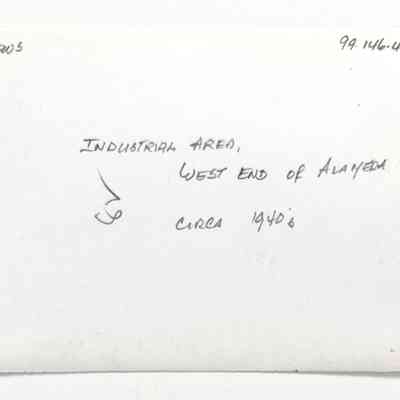 99.146.4
INDUSTRIAL AREA,
WEST END OF ALAMEDA
CIRCA 1940's